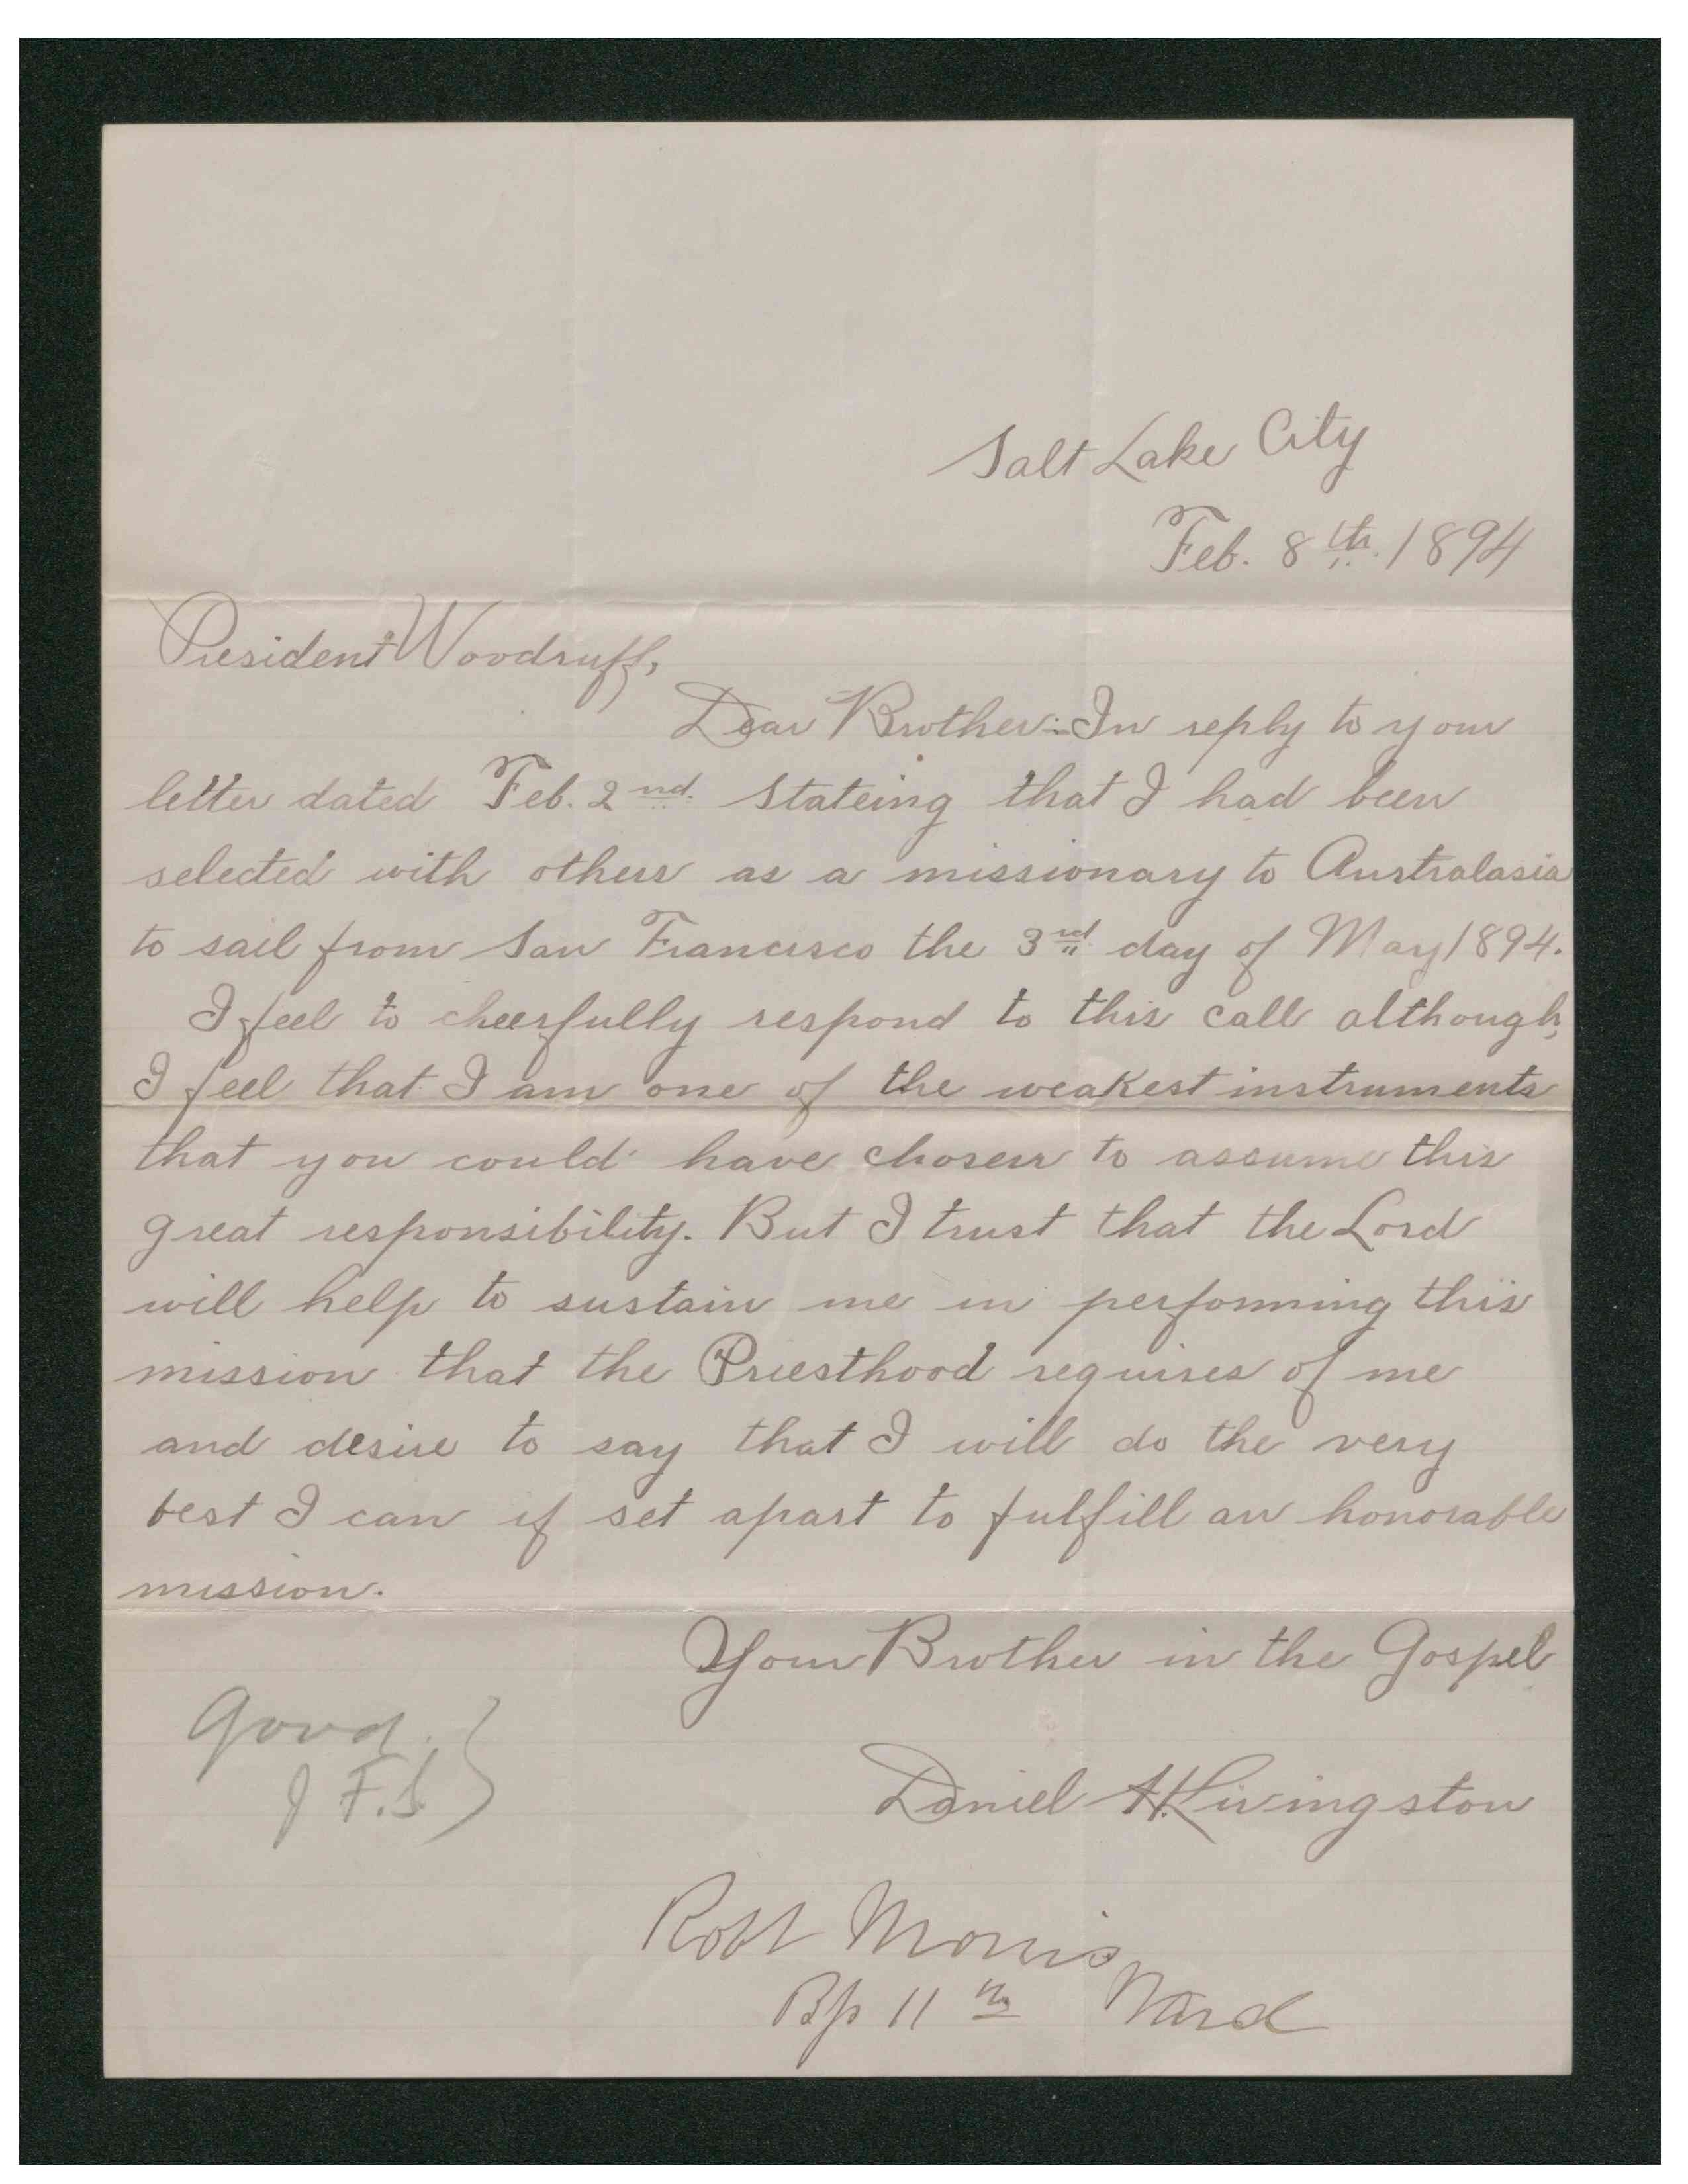 Salt Lake City
Feb. 8th. 1894
President Woodruff,
Dear Brother:- In reply to your
letter dated Feb. 2nd. Stateing that I had been
selected with others as a missionary to Australasia
to sail from San Francisco the 3rd day of May 1894.
I feel to cheerfully respond to this call although,
I feel that I am one of the weakest instruments
that you could have chosen to assume this
great responsibility. But I trust that the Lord
will help to sustain me in performing this
mission that the Priesthood requires of me
and desire to say that I will do the very
best I can if set apart to fulfill an honorable
mission.
Your Brother in the Gospel
Daniel H. Livingston
Good.
J F.S.
Robt Morris
Bp 11th Ward